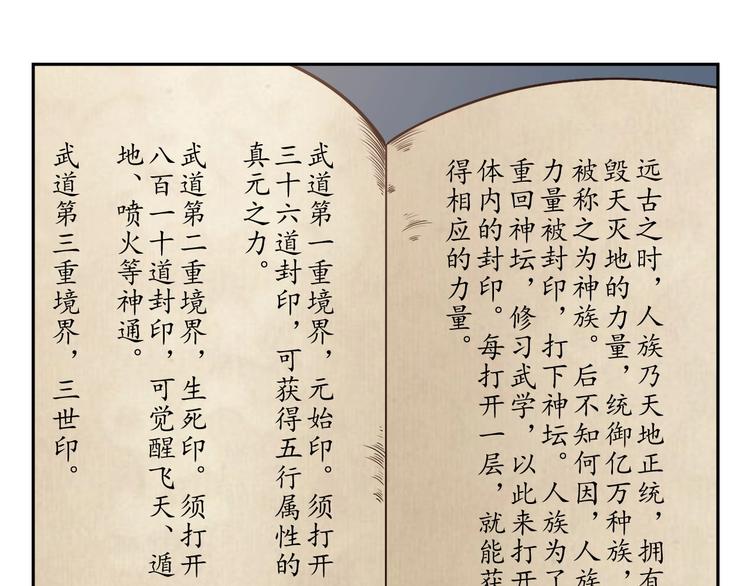 远古之时，人族乃天地正统，拥有
毁天灭地的力量，统御亿万种族，
被称之为神族。后不知何因，人族
力量被封印，打下神坛。人族为了
重回神坛，修习武学，以此来打开
体内的封印。每打开一层，就能获
得相应的力量。
武道第一重境界，元始印。须打开
三十六道封印，可获得五行属性的
真元之力。
武道第二重境界，生死印。须打开
八百一十道封印，可觉醒飞天、遁
地、喷火等神通。
武道第三重境界，三世印。